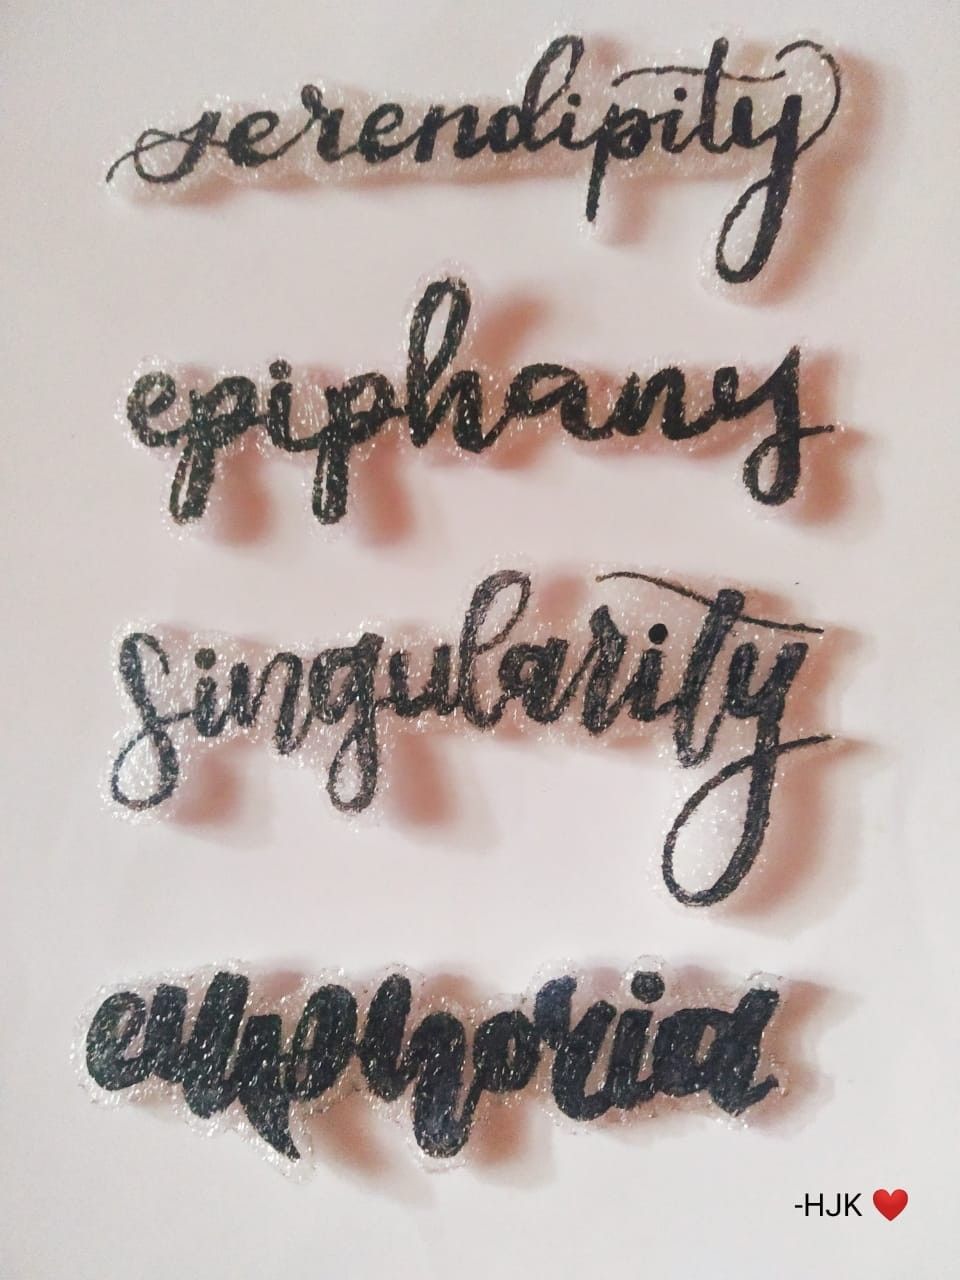 serendipity
epiphany
singularity
euphoria
-HJK ❤️